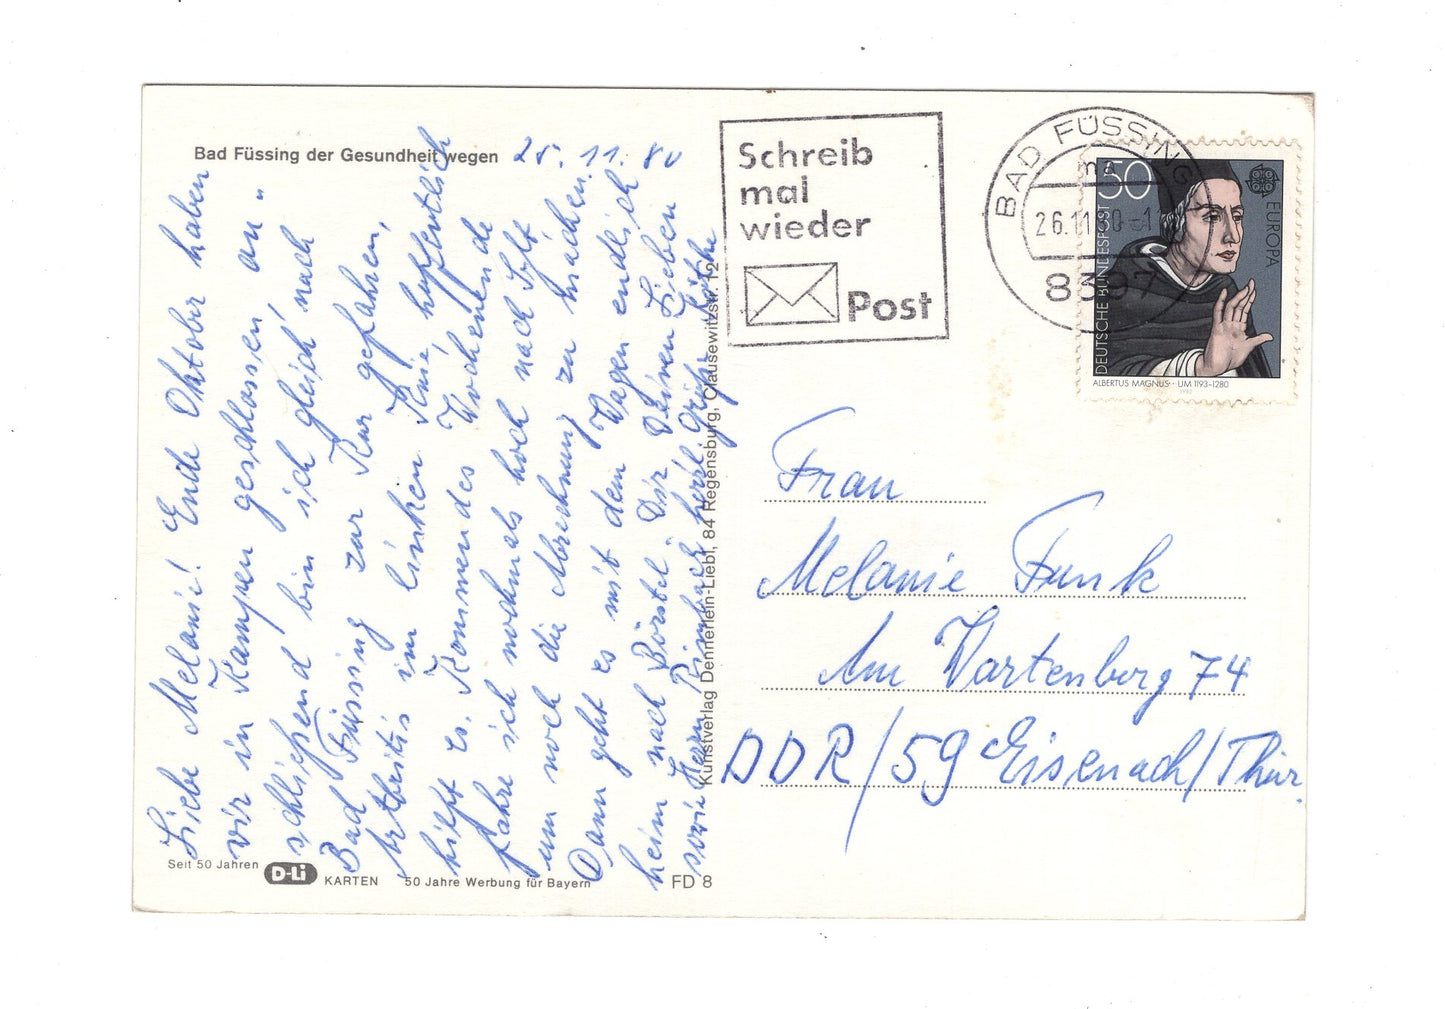 Bad Füssing der Gesundheit wegen
25. 11. 80
Liebe Melanie! Ende Oktober haben
wir in Kampen geschlossen, an„
schließend bin ich gleich nach
Bad Füssing zur Kur gefahren,
Arthritis im linken Knie, hoffentlich
hilft es. Kommendes Wochenende
fahre ich nochmals hoch nach Sylt
um noch die Abrechnung zu machen.
Dann geht es mit dem Wagen endlich
heim nach Börstel. Dir, Deinen Lieben
sowie Herrn herzl. Grüße Käthe
Seit 50 Jahren
D-Li
KARTEN
50 Jahre Werbung für Bayern
FD 8
Kunstverlag Dennerlein-Liebl, 84 Regensburg, Clausewitzstr. 12
Schreib
mal
wieder
Post
BAD FÜSSING
ma
26.11.80-1
8397
50
DEUTSCHE BUNDESPOST
EUROPA
ALBERTUS MAGNUS · UM 1193-1280
1980
Frau
Melanie Funk
Am Wartenberg 74
DDR/59 Eisenach/Thür.